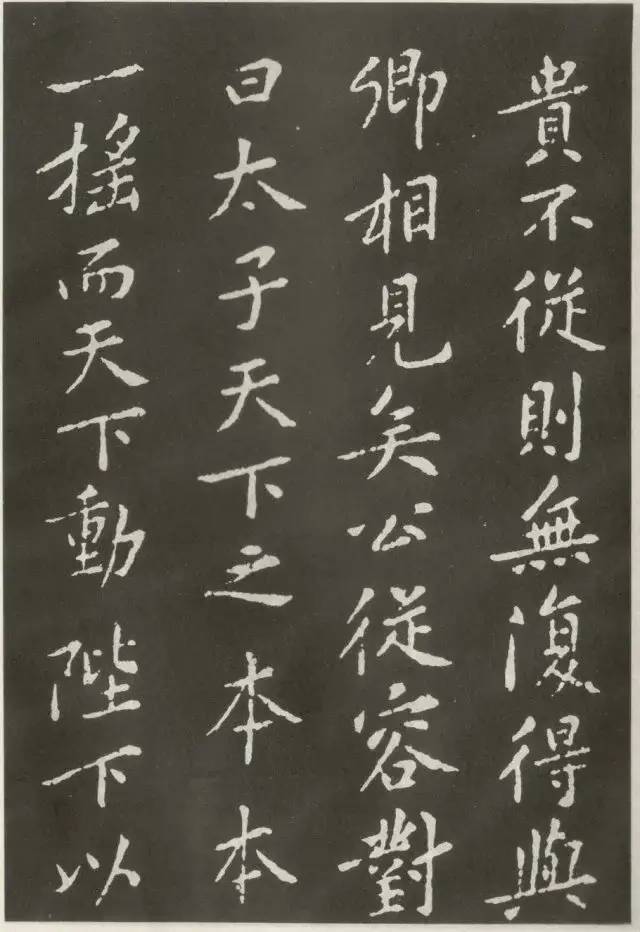 貴不從則無復得與
卿相見矣公從容對
曰太子天下之本本
一搖而天下動陛下以